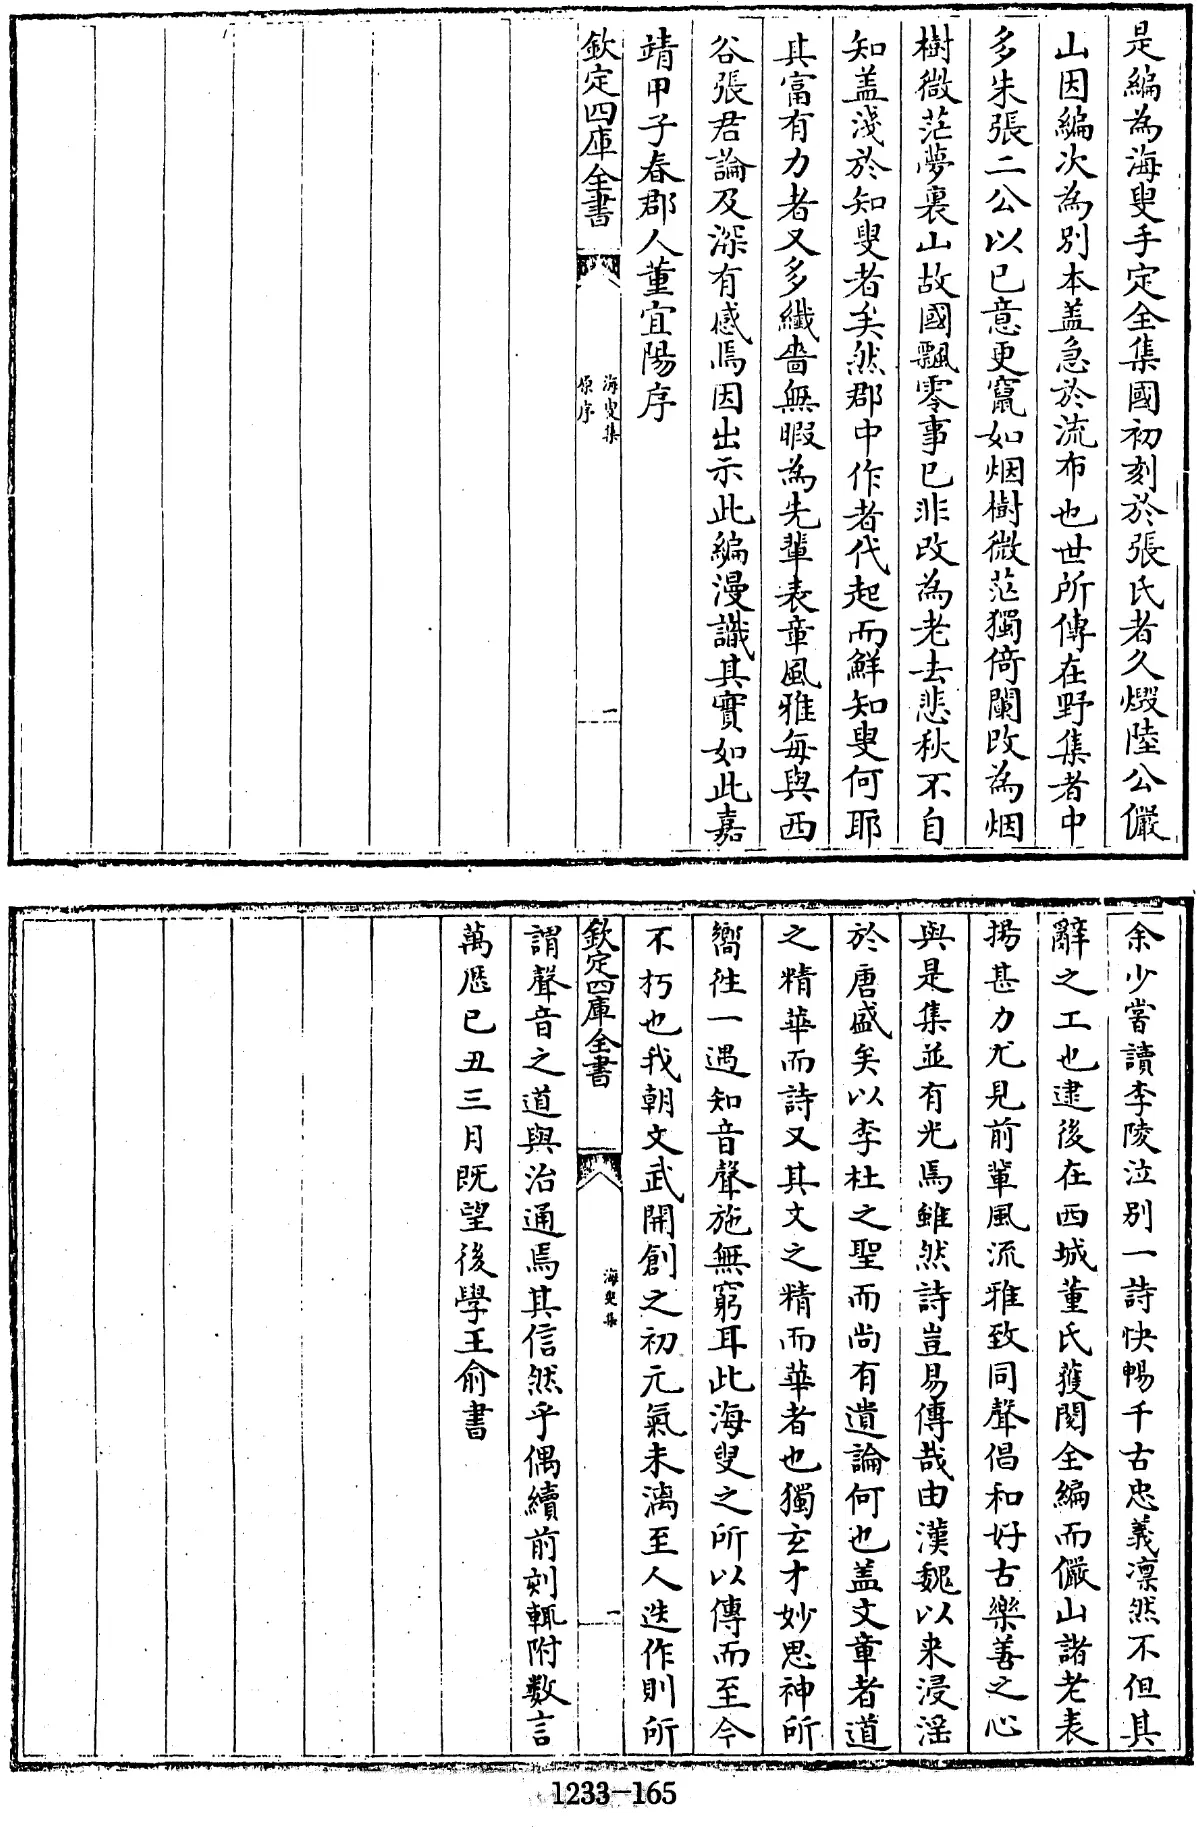 是編為海叟手定全集國初刻於張氏者久燬陸公儼
山因編次為別本盖急於流布也世所傳在野集者中
多朱張二公以已意更竄如烟樹微茫獨倚闌改為烟
樹微茫夢裏山故國飄零事已非改為老去悲秋不自
知盖淺於知叟者矣然郡中作者代起而鮮知叟何耶
其富有力者又多纖嗇無暇為先輩表章風雅每與西
谷張君論及深有感焉因出示此編漫識其實如此嘉
靖甲子春郡人董宜陽序
欽定四庫全書
海叟集
原序
一
余少嘗讀李陵泣別一詩快暢千古忠義凛然不但其
辭之工也逮後在西城董氏獲閱全編而儼山諸老表
揚甚力尤見前輩風流雅致同聲倡和好古樂善之心
與是集並有光焉雖然詩豈易傳哉由漢魏以来浸淫
於唐盛矣以李杜之聖而尚有遺論何也盖文章者道
之精華而詩又其文之精而華者也獨玄才妙思神所
嚮徃一遇知音聲施無窮耳此海叟之所以傳而至今
不朽也我朝文武開創之初元氣未漓至人迭作則所
欽定四庫全書
海叟集
一
謂聲音之道與治通焉其信然乎偶續前刻輒附数言
萬厯已丑三月既望後學王俞書
1233—165